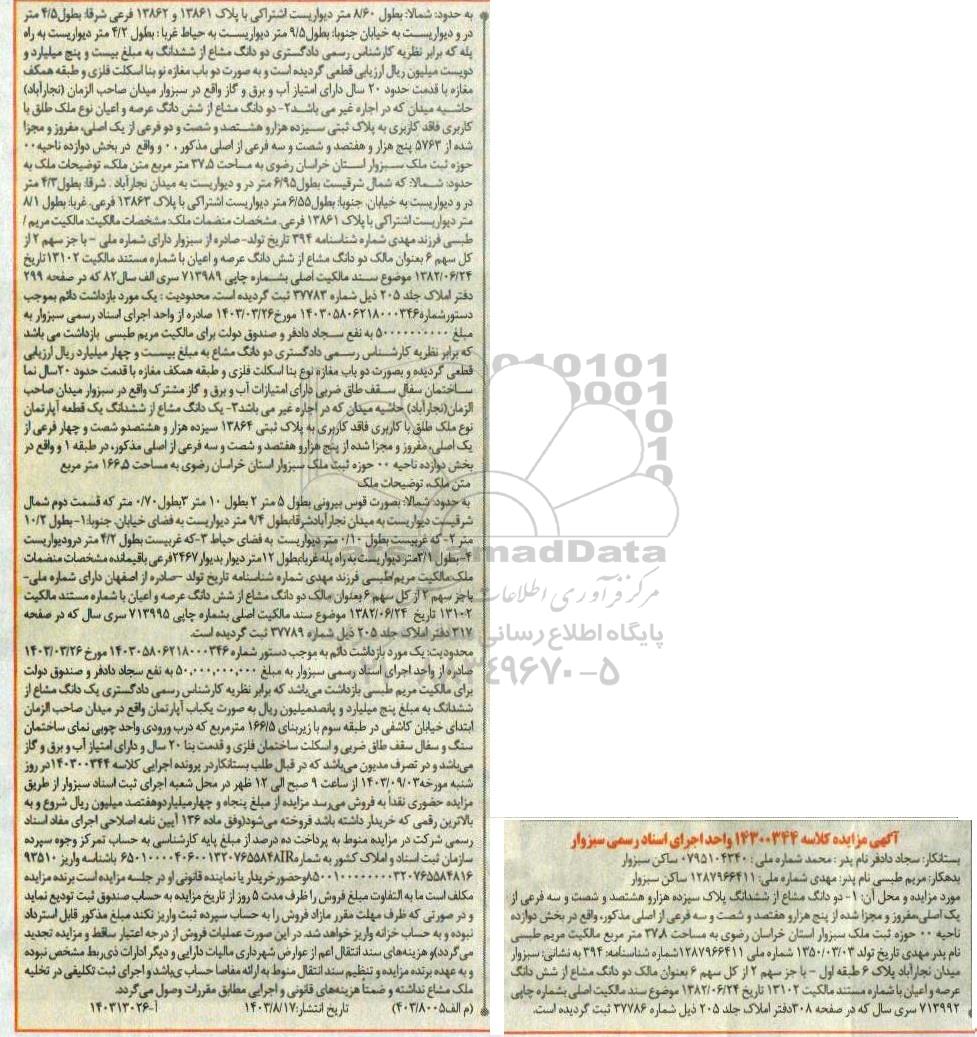 آگهی مزایده کلاسه ۱۴۳۰۰۳۴۴ واحد اجرای اسناد رسمی سبزوار
بستانکار: سجاد دادفر نام پدر : محمد شماره ملی : ۰۷۹۵۱۰۴۳۴۰ ساکن سبزوار
بدهکار: مریم طبسی نام پدر: مهدی شماره ملی: ۱۲۸۷۹۶۶۴۱۱ ساکن سبزوار
مورد مزایده و محل آن: ۱- دو دانگ مشاع از ششدانگ پلاک سیزده هزارو هشتصد و شصت و سه فرعی از
یک اصلی،مفروز و مجزا شده از پنج هزارو هفتصد و شصت و سه فرعی از اصلی مذکور، واقع در بخش دوازده
ناحیه ۰۰ حوزه ثبت ملک سبزوار استان خراسان رضوی به مساحت ۳۷،۸ متر مربع مالکیت مریم طبسی
نام پدر مهدی تاریخ تولد ۱۳۵۰/۰۳/۰۳ شماره ملی ۱۲۸۷۹۶۶۴۱۱شماره شناسنامه: ۳۹۴ به نشانی: سبزوار
میدان نجارآباد پلاک ۶ طبقه اول - با جز سهم ۲ از کل سهم ۶ بعنوان مالک دو دانگ مشاع از شش دانگ
عرصه و اعیان با شماره مستند مالکیت ۱۳۱۰۲ تاریخ ۱۳۸۲/۰۶/۲۴ موضوع سند مالکیت اصلی بشماره چاپی
۷۱۳۹۹۲ سری سال که در صفحه ۳۰۸دفتر املاک جلد ۲۰۵ ذیل شماره ۳۷۷۸۶ ثبت گردیده است.
به حدود: شمالا: بطول ۸/۶۰ متر دیواریست اشتراکی با پلاک ۱۳۸۶۱ و ۱۳۸۶۲ فرعی شرقا: بطول۴/۵ متر
در و دیواریست به خیابان جنوبا: بطول۹/۵ متر دیواریست به حیاط غربا : بطول ۴/۲ متر دیواریست به راه
پله که برابر نظریه کارشناس رسمی دادگستری دو دانگ مشاع از ششدانگ به مبلغ بیست و پنج میلیارد و
دویست میلیون ریال ارزیابی قطعی گردیده است و به صورت دو باب مغازه نو بنا اسکلت فلزی و طبقه همکف
مغازه با قدمت حدود ۲۰ سال دارای امتیاز آب و برق و گاز واقع در سبزوار میدان صاحب الزمان (نجارآباد)
حاشیه میدان که در اجاره غیر می باشد.۲- دو دانگ مشاع از شش دانگ عرصه و اعیان نوع ملک طلق با
کاربری فاقد کاربری به پلاک ثبتی سیزده هزارو هشتصد و شصت و دو فرعی از یک اصلی، مفروز و مجزا
شده از ۵۷۶۳ پنج هزار و هفتصد و شصت و سه فرعی از اصلی مذکور ، ۰ و واقع در بخش دوازده ناحیه۰۰
حوزه ثبت ملک سبزوار استان خراسان رضوی به مساحت ۳۷،۵ متر مربع متن ملک، توضیحات ملک به
حدود: شمالا: که شمال شرقیست بطول۶/۹۵ متر در و دیواریست به میدان نجارآباد . شرقا: بطول۴/۳ متر
در و دیواریست به خیابان. جنوبا: بطول۶/۵۵ متر دیواریست اشتراکی با پلاک ۱۳۸۶۳ فرعی. غربا: بطول ۸/۱
متر دیواریست اشتراکی با پلاک ۱۳۸۶۱ فرعی. مشخصات منضمات ملک: مشخصات مالکیت: مالکیت مریم /
طبسی فرزند مهدی شماره شناسنامه ۳۹۴ تاریخ تولد- صادره از سبزوار دارای شماره ملی - با جز سهم ۲ از
کل سهم ۶ بعنوان مالک دو دانگ مشاع از شش دانگ عرصه و اعیان با شماره مستند مالکیت ۱۳۱۰۲تاریخ
۱۳۸۲/۰۶/۲۴ موضوع سند مالکیت اصلی بشماره چاپی ۷۱۳۹۸۹ سری الف سال۸۲ که در صفحه ۲۹۹
دفتر املاک جلد ۲۰۵ ذیل شماره ۳۷۷۸۳ ثبت گردیده است. محدودیت : یک مورد بازداشت دائم بموجب
دستورشماره۱۴۰۳۰۵۸۰۶۲۱۸۰۰۰۳۴۶ مورخ۱۴۰۳/۰۳/۲۶ صادره از واحد اجرای اسناد رسمی سبزوار به
مبلغ ۵۰۰۰۰۰۰۰۰۰۰ به نفع سجاد دادفر و صندوق دولت برای مالکیت مریم طبسی بازداشت می باشد
که برابر نظریه کارشناس رسمی دادگستری دو دانگ مشاع به مبلغ بیست و چهار میلیارد ریال ارزیابی
قطعی گردیده و بصورت دو باب مغازه نوع بنا اسکلت فلزی و طبقه همکف مغازه با قدمت حدود ۲۰سال نما
ساختمان سفال سقف طاق ضربی دارای امتیازات آب و برق و گاز مشترک واقع در سبزوار میدان صاحب
الزمان(نجارآباد) حاشیه میدان که در اجاره غیر می باشد۳- یک دانگ مشاع از ششدانگ یک قطعه آپارتمان
نوع ملک طلق با کاربری فاقد کاربری به پلاک ثبتی ۱۳۸۶۴ سیزده هزار و هشتصدو شصت و چهار فرعی از
یک اصلی، مفروز و مجزا شده از پنج هزارو هفتصد و شصت و سه فرعی از اصلی مذکور، در طبقه ۱ و واقع در
بخش دوازده ناحیه ۰۰ حوزه ثبت ملک سبزوار استان خراسان رضوی به مساحت ۱۶۶،۵ متر مربع
متن ملک، توضیحات ملک
به حدود: شمالا: بصورت قوس بیرونی بطول ۵ متر ۲ بطول ۱۰ متر ۳بطول۰/۷۰ متر که قسمت دوم شمال
شرقیست دیواریست به میدان نجارآبادشرقا:بطول ۹/۴ متر دیواریست به فضای خیابان. جنوبا:۱- بطول ۱۰/۲
متر ۲- که غربیست بطول ۰/۱۰ متر دیواریست به فضای حیاط ۳-که غربیست بطول ۴/۲ متر درودیواریست
۴-بطول ۳/۱متر دیواریست به راه پله غربا:بطول ۱۲متر دیوار بدیوار۲۴۶۷فرعی باقیمانده مشخصات منضمات
ملک:مالکیت مریم/طبسی فرزند مهدی شماره شناسنامه تاریخ تولد -صادره از اصفهان دارای شماره ملی-
باجز سهم ۲ از کل سهم ۶بعنوان مالک دو دانگ مشاع از شش دانگ عرصه و اعیان با شماره مستند مالکیت
۱۳۱۰۲ تاریخ ۱۳۸۲/۰۶/۲۴ موضوع سند مالکیت اصلی بشماره چاپی ۷۱۳۹۹۵ سری سال که در صفحه
۳۱۷ دفتر املاک جلد ۲۰۵ ذیل شماره ۳۷۷۸۹ ثبت گردیده است.
محدودیت: یک مورد بازداشت دائم به موجب دستور شماره ۱۴۰۳۰۵۸۰۶۲۱۸۰۰۰۳۴۶ مورخ ۱۴۰۳/۰۳/۲۶
صادره از واحد اجرای اسناد رسمی سبزوار به مبلغ ۵۰,۰۰۰,۰۰۰,۰۰۰ به نفع سجاد دادفر و صندوق دولت
برای مالکیت مریم طبسی بازداشت می‌باشد که برابر نظریه کارشناس رسمی دادگستری یک دانگ مشاع از
ششدانگ به مبلغ پنج میلیارد و پانصدمیلیون ریال به صورت یکباب آپارتمان واقع در میدان صاحب الزمان
ابتدای خیابان کاشفی در طبقه سوم با زیربنای ۱۶۶/۵ مترمربع که درب ورودی واحد چوبی نمای ساختمان
سنگ و سفال سقف طاق ضربی و اسکلت ساختمان فلزی و قدمت بنا ۲۰ سال و دارای امتیاز آب و برق و گاز
می‌باشد و در تصرف مدیون می‌باشد که در قبال طلب بستانکاردر پرونده اجرایی کلاسه ۱۴۰۳۰۰۳۴۴در روز
شنبه مورخه۱۴۰۳/۰۹/۰۳ از ساعت ۹ صبح الی ۱۲ ظهر در محل شعبه اجرای ثبت اسناد سبزوار از طریق
مزایده حضوری نقداً به فروش می‌رسد مزایده از مبلغ پنجاه و چهارمیلیاردوهفتصد میلیون ریال شروع و به
بالاترین رقمی که خریدار داشته باشد فروخته می‌شود(وفق ماده ۱۳۶ آیین نامه اصلاحی اجرای مفاد اسناد
رسمی شرکت در مزایده منوط به پرداخت ده درصد از مبلغ پایه کارشناسی به حساب تمرکز وجوه سپرده
سازمان ثبت اسناد و املاک کشور به شمارهIR۶۵۰۱۰۰۰۰۴۰۶۰۰۱۳۲۰۷۶۵۵۸۴۸ باشناسه واریز ۹۳۵۱۰
۸۵۰۰۱۰۰۰۰۰۰۰۳۲۰۷۶۵۵۸۴۸۱۶وحضورخریدار یا نماینده قانونی او در جلسه مزایده است برنده مزایده
مکلف است ما به التفاوت مبلغ فروش را ظرف مدت ۵ روز از تاریخ مزایده به حساب صندوق ثبت تودیع نماید
و در صورتی که ظرف مهلت مقرر مازاد فروش را به حساب سپرده ثبت واریز نکند مبلغ مذکور قابل استرداد
نبوده و به حساب خزانه واریز خواهد شد. در این صورت عملیات فروش از درجه اعتبار ساقط و مزایده تجدید
می‌گردد)و هزینه‌های سند انتقال اعم از عوارض شهرداری مالیات دارایی و دیگر ادارات ذی‌ربط مشخص نبوده
و به عهده برنده مزایده و تنظیم سند انتقال منوط به ارائه مفاصا حساب می‌باشد و اجرای ثبت تکلیفی در تخلیه
ملک مشاع نداشته و ضمناً هزینه‌های قانونی و اجرایی مطابق مقررات وصول می‌گردد.
(م الف۴۰۳/۸۰۰۵) تاریخ انتشار:۱۴۰۳/۸/۱۷ آ-۱۴۰۳۱۳۰۲۶
ParsNamadData
مرکز فرآوری اطلاعات
پایگاه اطلاع رسانی